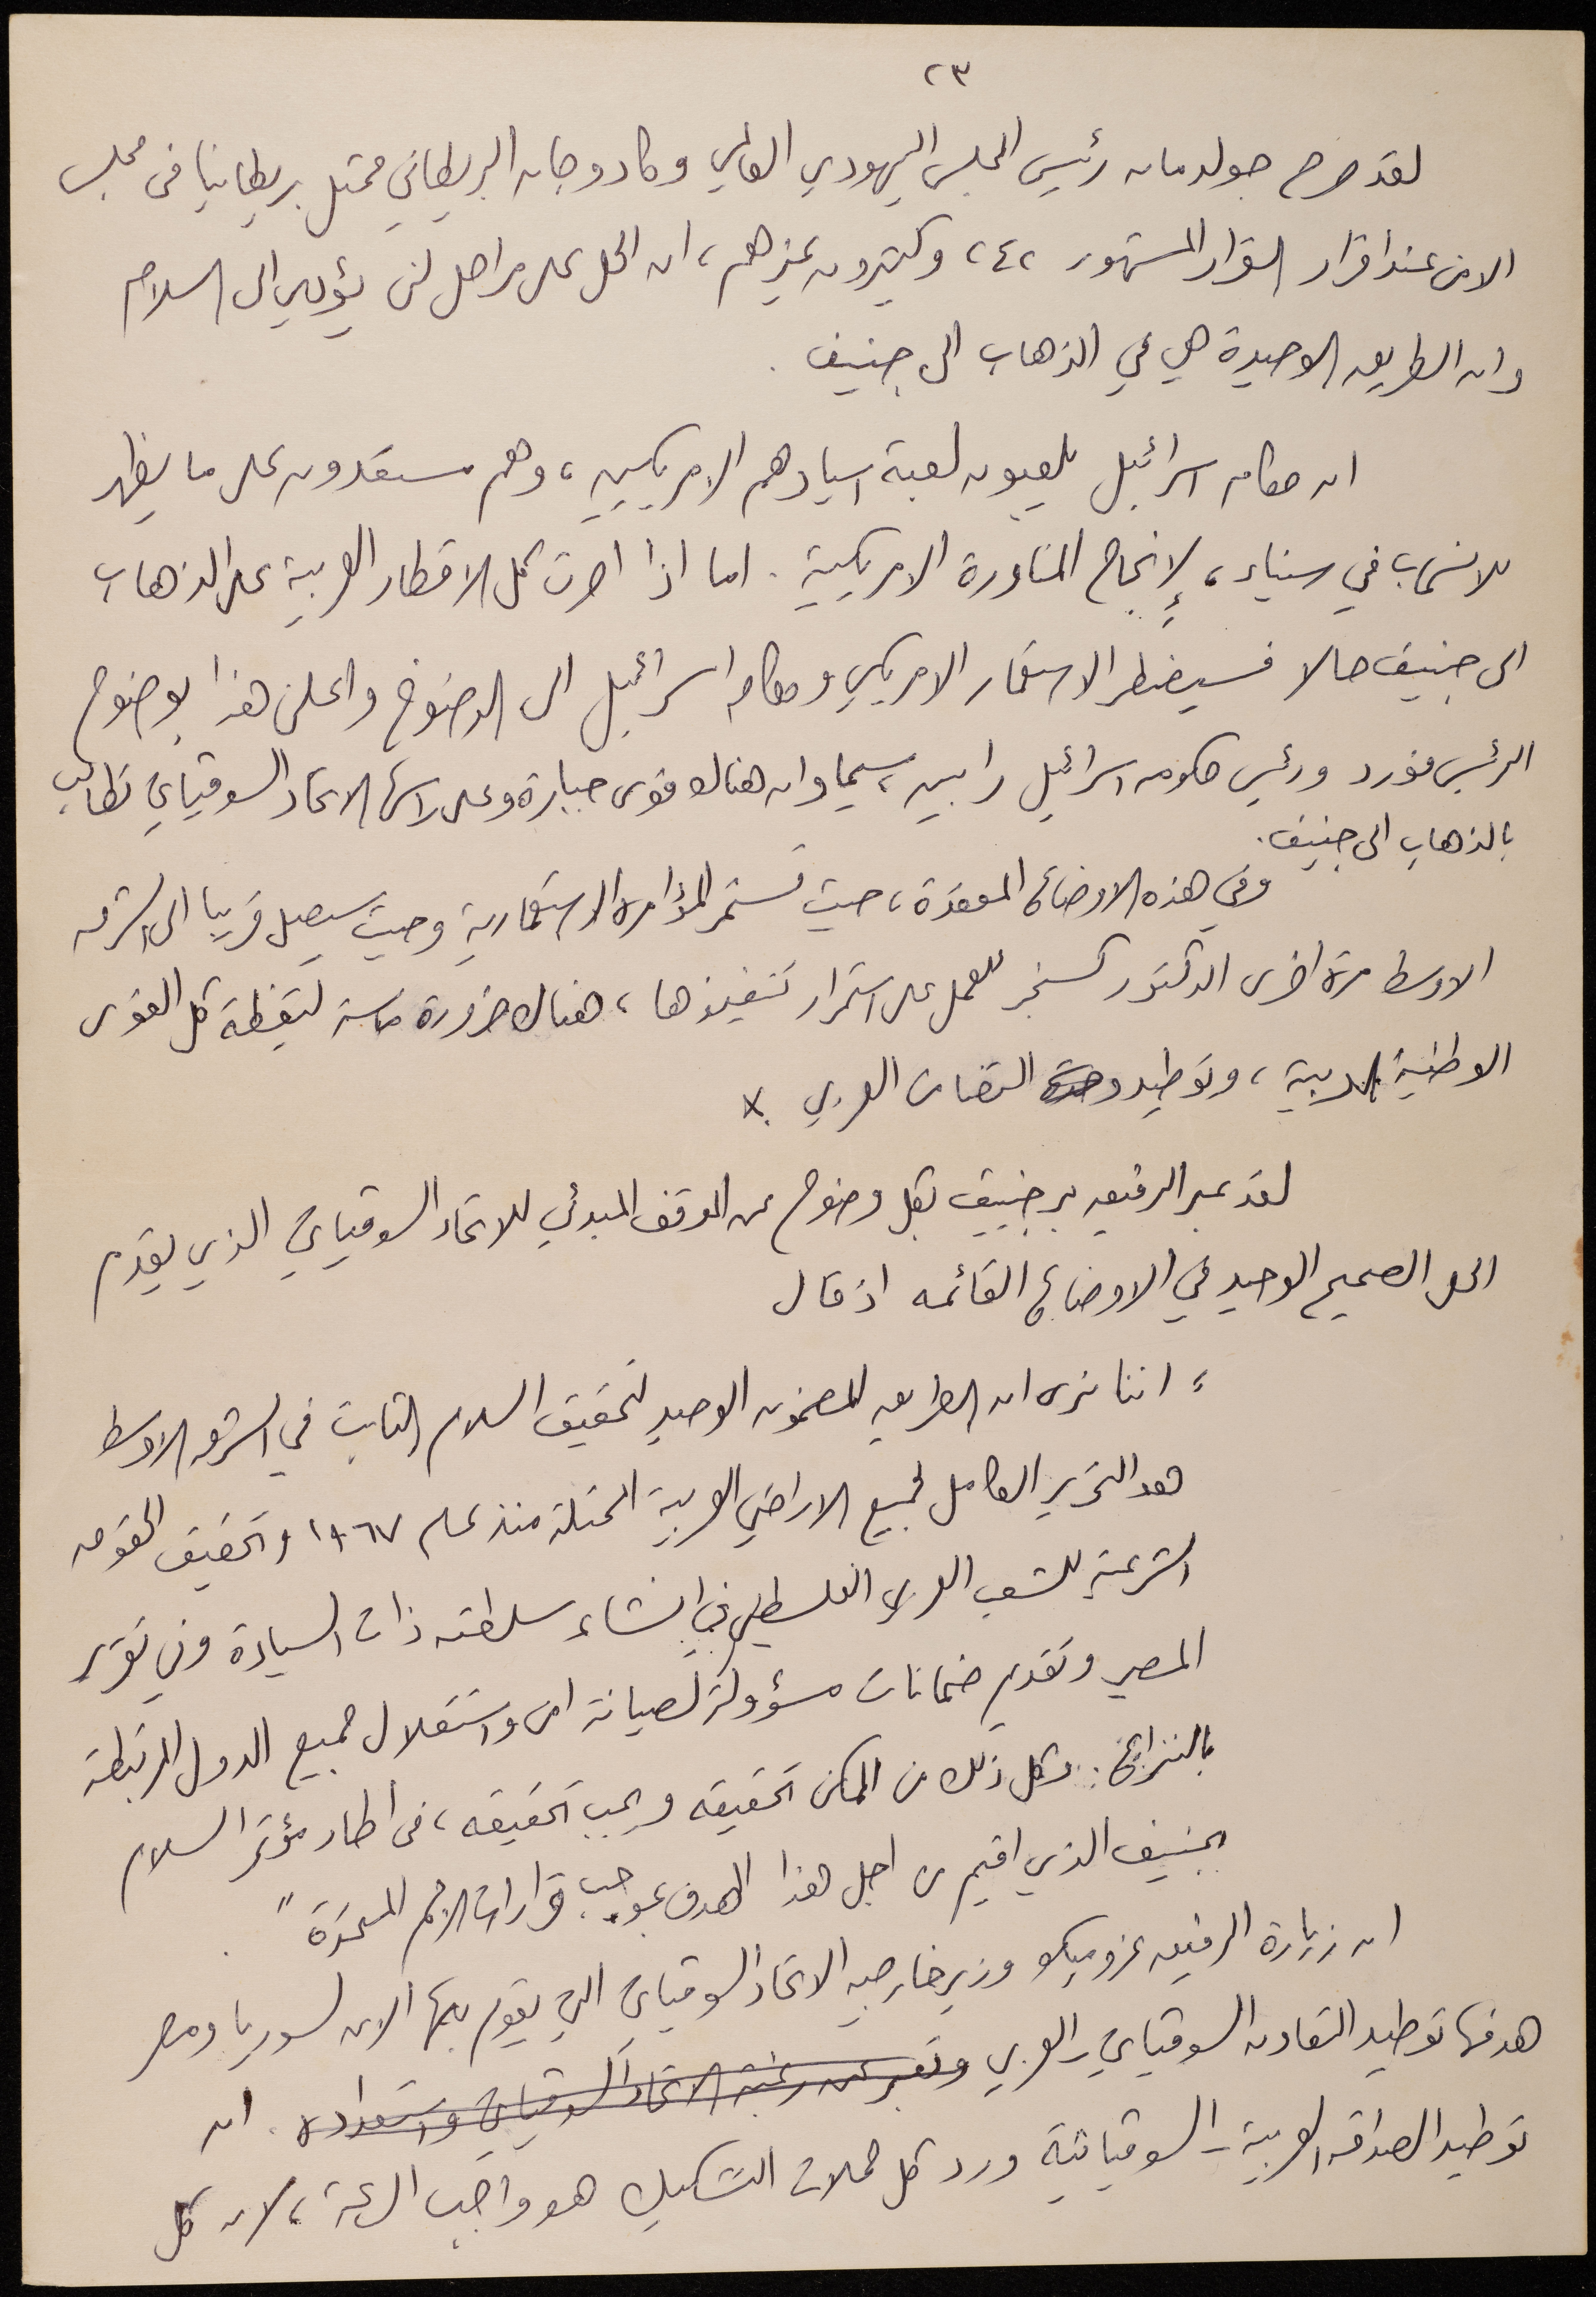 ٢٣
لقد صرح جولدمان رئيس المجلس اليهودي العالمي وكارادوجان البريطاني ممثل بريطانيا في مجلس
الامن عند اقرار القرار المشهور ٢٤٢ وكثيرون غيرهم، ان الحل على مراحل لن يؤدي الى السلام
وان الطريق الوحيدة هي في الذهاب الى جنيف.
ان حكام اسرائيل يلعبون لعبة اسيادهم الامريكيين، وهم مستعدون على ما يظهر
للانسحاب في سيناء، لإنجاح المناورة الامريكية. اما اذا اصرت كل الاقطار العربية على الذهاب
الى جنيف حالا فسيضطر الاستعمار الامريكي وحكام اسرائيل الى الرضوخ واعلن هذا بوضوح
الرئيس فورد ورئيس حكومة اسرائيل رابين، سيما وان هناك قوى جبارة وعلى رأسها الاتحاد السوفياتي تطالب
بالذهاب الى جنيف.
وفي هذه الاوضاع المعقدة، حيث تستمر المؤامرة الاستعمارية وحيث سيصل قريبا الى الشرق
الاوسط مرة اخرى الدكتور كسنجر للعمل على استمرار تنفيذها، هناك ضرورة ماسة ليقظة كل القوى
الوطنية العربية، وتوطيد وحدة التضامن العربي. x
لقد عبر الرفيق برجنيف بكل وضوح عن الموقف المبدئي للاتحاد السوفياتي الذي يقدم
الحل الصحيح الوحيد في الاوضاع القائمه اذ قال
" اننا نرى ان الطريق المضمون الوحيد لتحقيق السلام الثابت في الشرق الاوسط
هو التحرير الكامل لجميع الاراضي العربية المحتلة منذ عام ١٩٦٧ وتحقيق الحقوق
الشرعية للشعب العربي الفلسطيني في انشاء سلطته ذات السيادة وفي تقرير
المصير وتقديم ضمانات مسؤولة لصيانة امن واستقلال جميع الدول المرتبطة
بالنزاع. وكل ذلك من الممكن تحقيقه ويجب تحقيقه، في اطار مؤتمر السلام
بجنيف الذي اقيم من اجل هذا الهدف بموجب قرارات الامم المتحدة".
ان زيارة الرفيق غروميكو وزير خارجية الاتحاد السوفياتي التي يقوم بها الان لسوريا ومصر
هدفها توطيد التعاون السوفياتي - العربي وتعبر عن رغبة الاتحاد السوفياتي واستعداده. ان
توطيد الصداقة العربية - السوفياتية ورد كل حملات التشكيك هو واجب الساعة، لان كل